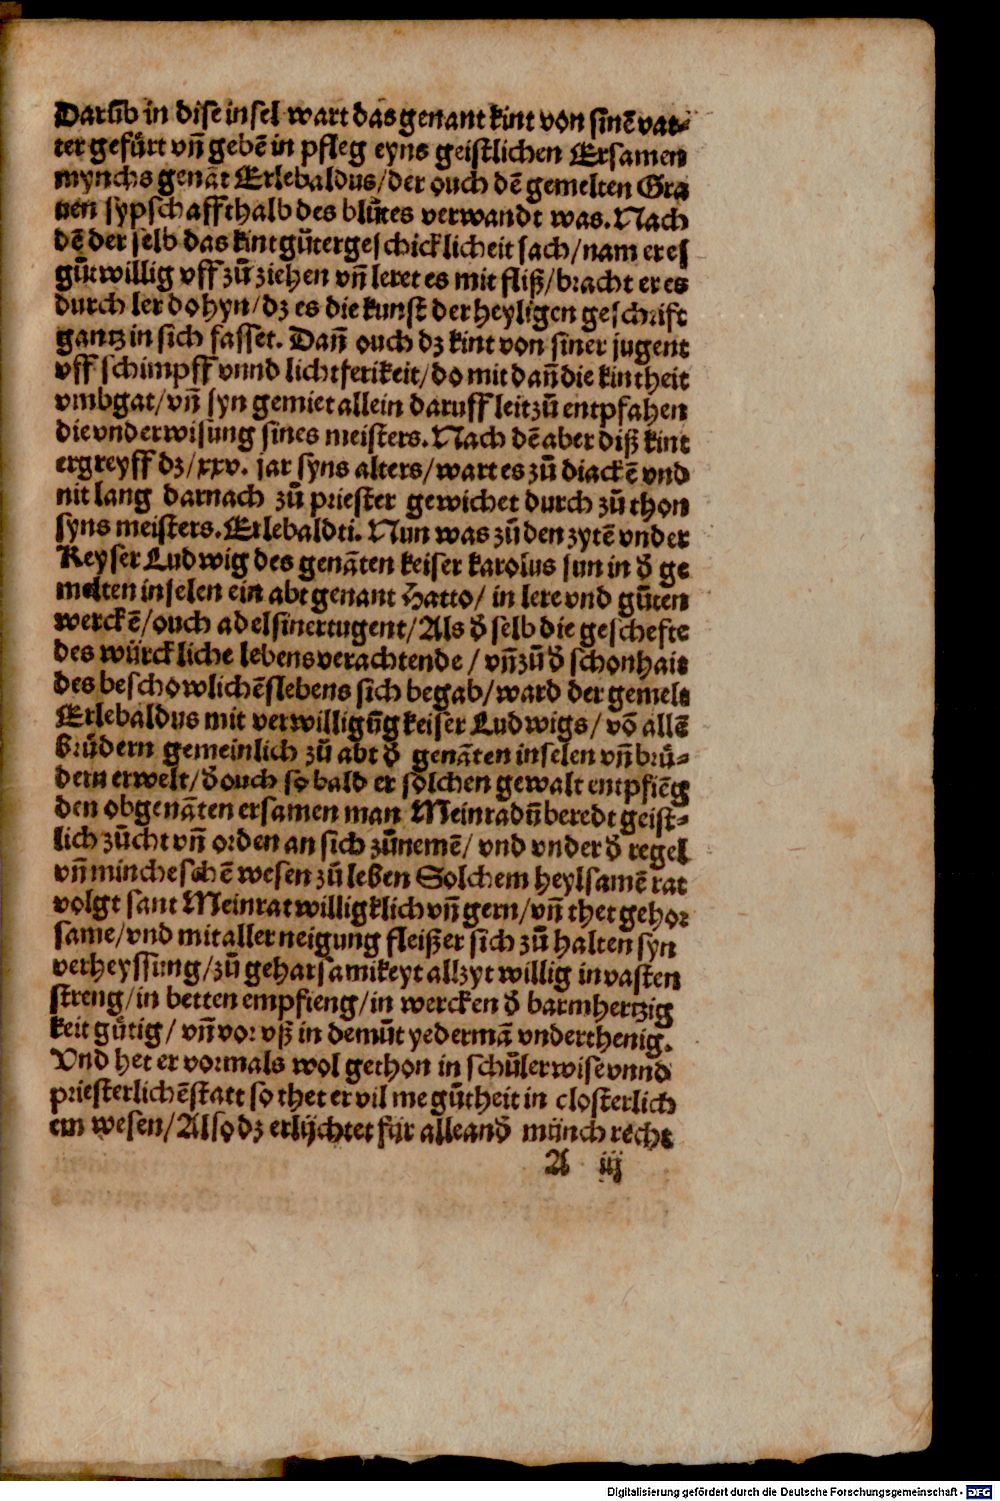 Darūb in dise insel wart das genant kint von sinē vat⸗
ter gefürt vn̄ gebē in pfleg eyns geistlichen Ersamen
mynchs genāt Erlebaldus/der ouch dē gemelten Gra
uen sypschaffthalb des blůtes verwandt was. Nach
dē der selb das kint gůter geschicklicheit sach/nam er es
gůtwillig vff zů ziehen vn̄ leret es mit fliß/bracht er es
durch ler dohyn/dz es die kunst der heyligen geschrift
gantz in sich fasset. Dan̄ ouch dz kint von siner jugent
vff schimpff vnnd lichtferikeit/do mit dan̄ die kintheit
vmbgat/vn̄ syn gemiet allein daruff leit zů entpfahen
die vnderwisung sines meisters. Nach dē aber diß kint
ergreyff dz/xxv. jar syns alters/wart es zů diackē vnd
nit lang darnach zů priester gewichet durch zů thon
syns meisters. Erlebaldti. Nun was zů den zytē vnder
Keyser Ludwig des genāten keiser karolus sun in d̄ ge
melten inselen ein abt genant Hatto/ in lere vnd gůten
werckē/ouch adel siner tugent/Als d̄ selb die geschefte
des würckliche lebens verachtende / vn̄ zů d̄ schonhait
des beschowlichēs lebens sich begab/ward der gemelt
Erlebaldus mit verwilligūg keiser Ludwigs/ vō allē
brüdern gemeinlich zů abt d̄ genāten inselen vn̄ brü⸗
dern erwelt/d̄ ouch so bald er solchen gewalt entpfiēg
den obgenāten ersamen man Meinradū beredt geist⸗
lich zůcht vn̄ orden an sich zůnemē/ vnd vnder d̄ regel
vn̄ mincheschē wesen zů leben Solchem heylsamē rat
volgt sant Meinrat willigklich vn̄ gern/vn̄ thet gehor
same/vnd mit aller neigung fleißer sich zů halten syn
verheyssung/zů geharsamikeyt allzyt willig in vasten
streng/in betten empfieng/in wercken d̄ barmhertzig
keit gůtig/ vn̄ vor vß in demůt yedermā vnderthenig.
Vnd het er vormals wol gethon in schůler wise vnnd
priesterlichē statt so thet er vil me gůtheit in closterlich
em wesen/Also dz er lüchtet für alle and̄ münch recht
A iij
Digitalisierung gefördert durch die Deutsche Forschungsgemeinschaft - DFG